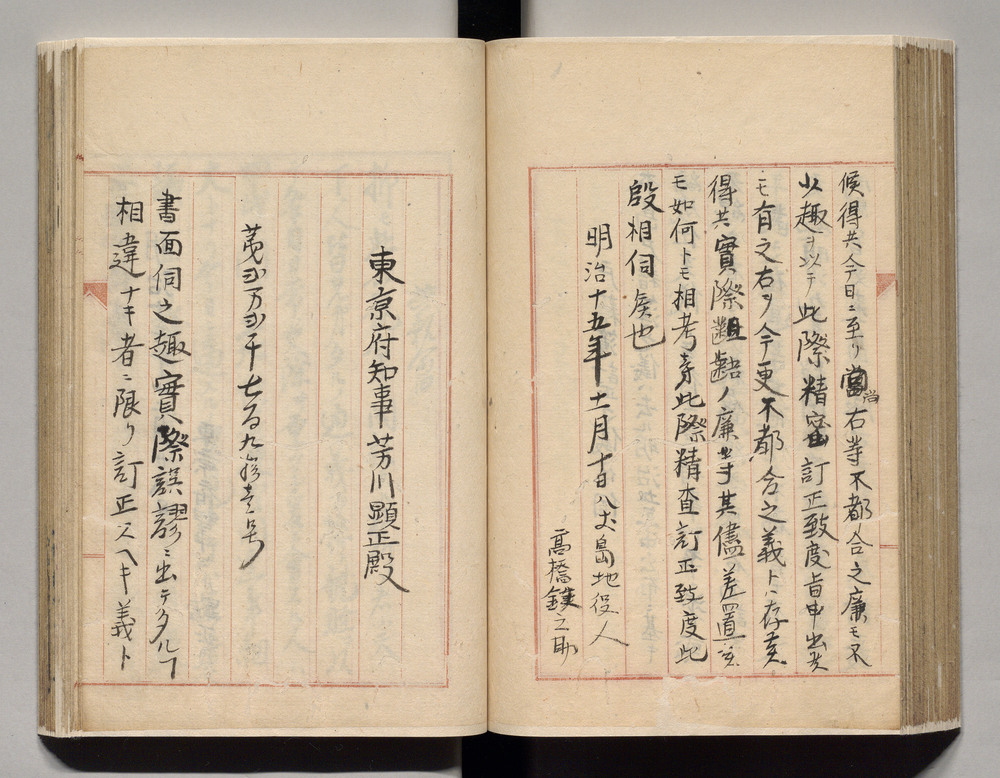 候得共今日ニ至リ尚右等不都合之廉モ不
少趣ヲ以テ此際精密訂正致度旨申出候
モ有之右ヲ今更不都合之義トハ存候
得共實際齟齬ノ廉其儘差置候
モ如何トモ相考候此際精査訂正致度此
段相伺候也
明治十五年十一月十日八丈島地役人
高橋鎌之助
東京府知事芳川顯正殿
第弐万弐千七百九拾壱号
書面伺之趣實際誤謬ニ出テタルヿ
相違ナキ者ニ限リ訂正スヘキ義ト